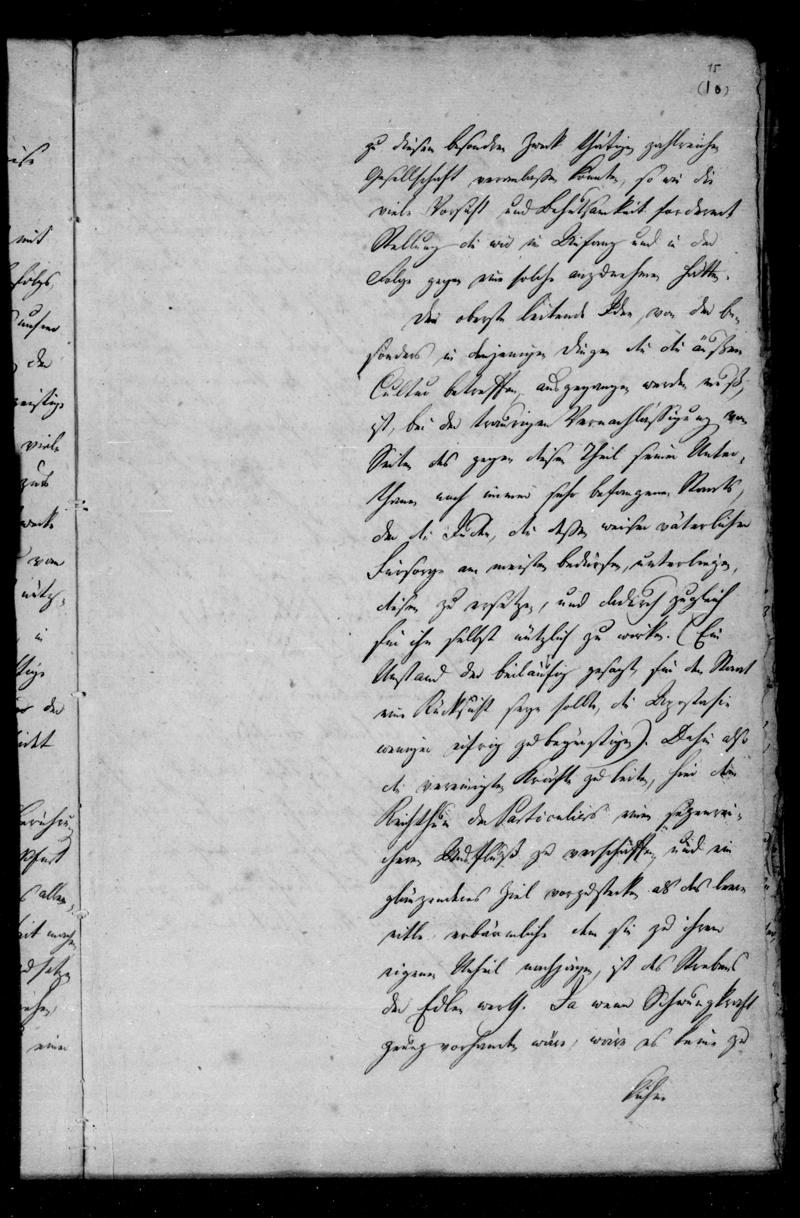 15
(10)
zu diesem besondern Zweck thätigen zahlreichen
Gesellschaft veranlaßen könnte, so wie die
viele Vorsicht und Behutsamkeit fordernde
Stellung die wir im Anfang und in der
Folge gegen eine solche anzunehmen hätten.
Die oberste leitende Idee, von der be-
sonders in denjenigen Dingen die die äußere
Cultur betreffen, ausgegangen werden muß,
ist, bei der traurigen Vernachläßigung von
Seiten des gegen diesen Theil seiner Unter-
thanen noch immer sehr befangenen Staats,
der die Juden, die deßen weiser väterlicher
Fürsorge am meisten bedürfen, unterliegen,
diesen zu ersetzen, und dadurch zugleich
für ihn selbst nützlich zu werden. (Ein
Umstand der beiläufig gesagt für den Staat
eine Rücksicht seyn sollte, die Apostasie
weniger eifrig zu begünstigen). Dahin also
die vereinigten Kräfte zu leiten, hier dem
Reichthum der Particuliers einen segenrei-
cheren Ausfluß zu verschaffen, und ein
glänzenderes Ziel vorzustecken als das leere
eitle erbärmliche dem sie zu ihrem
eigenen Unheil nachjagen, ist des Strebens
der Edlen werth. Ja wenn Schwungkraft
genug vorhanden wäre, wäre es keine zu
kühne
mit
der
viele
von
in
der
einen